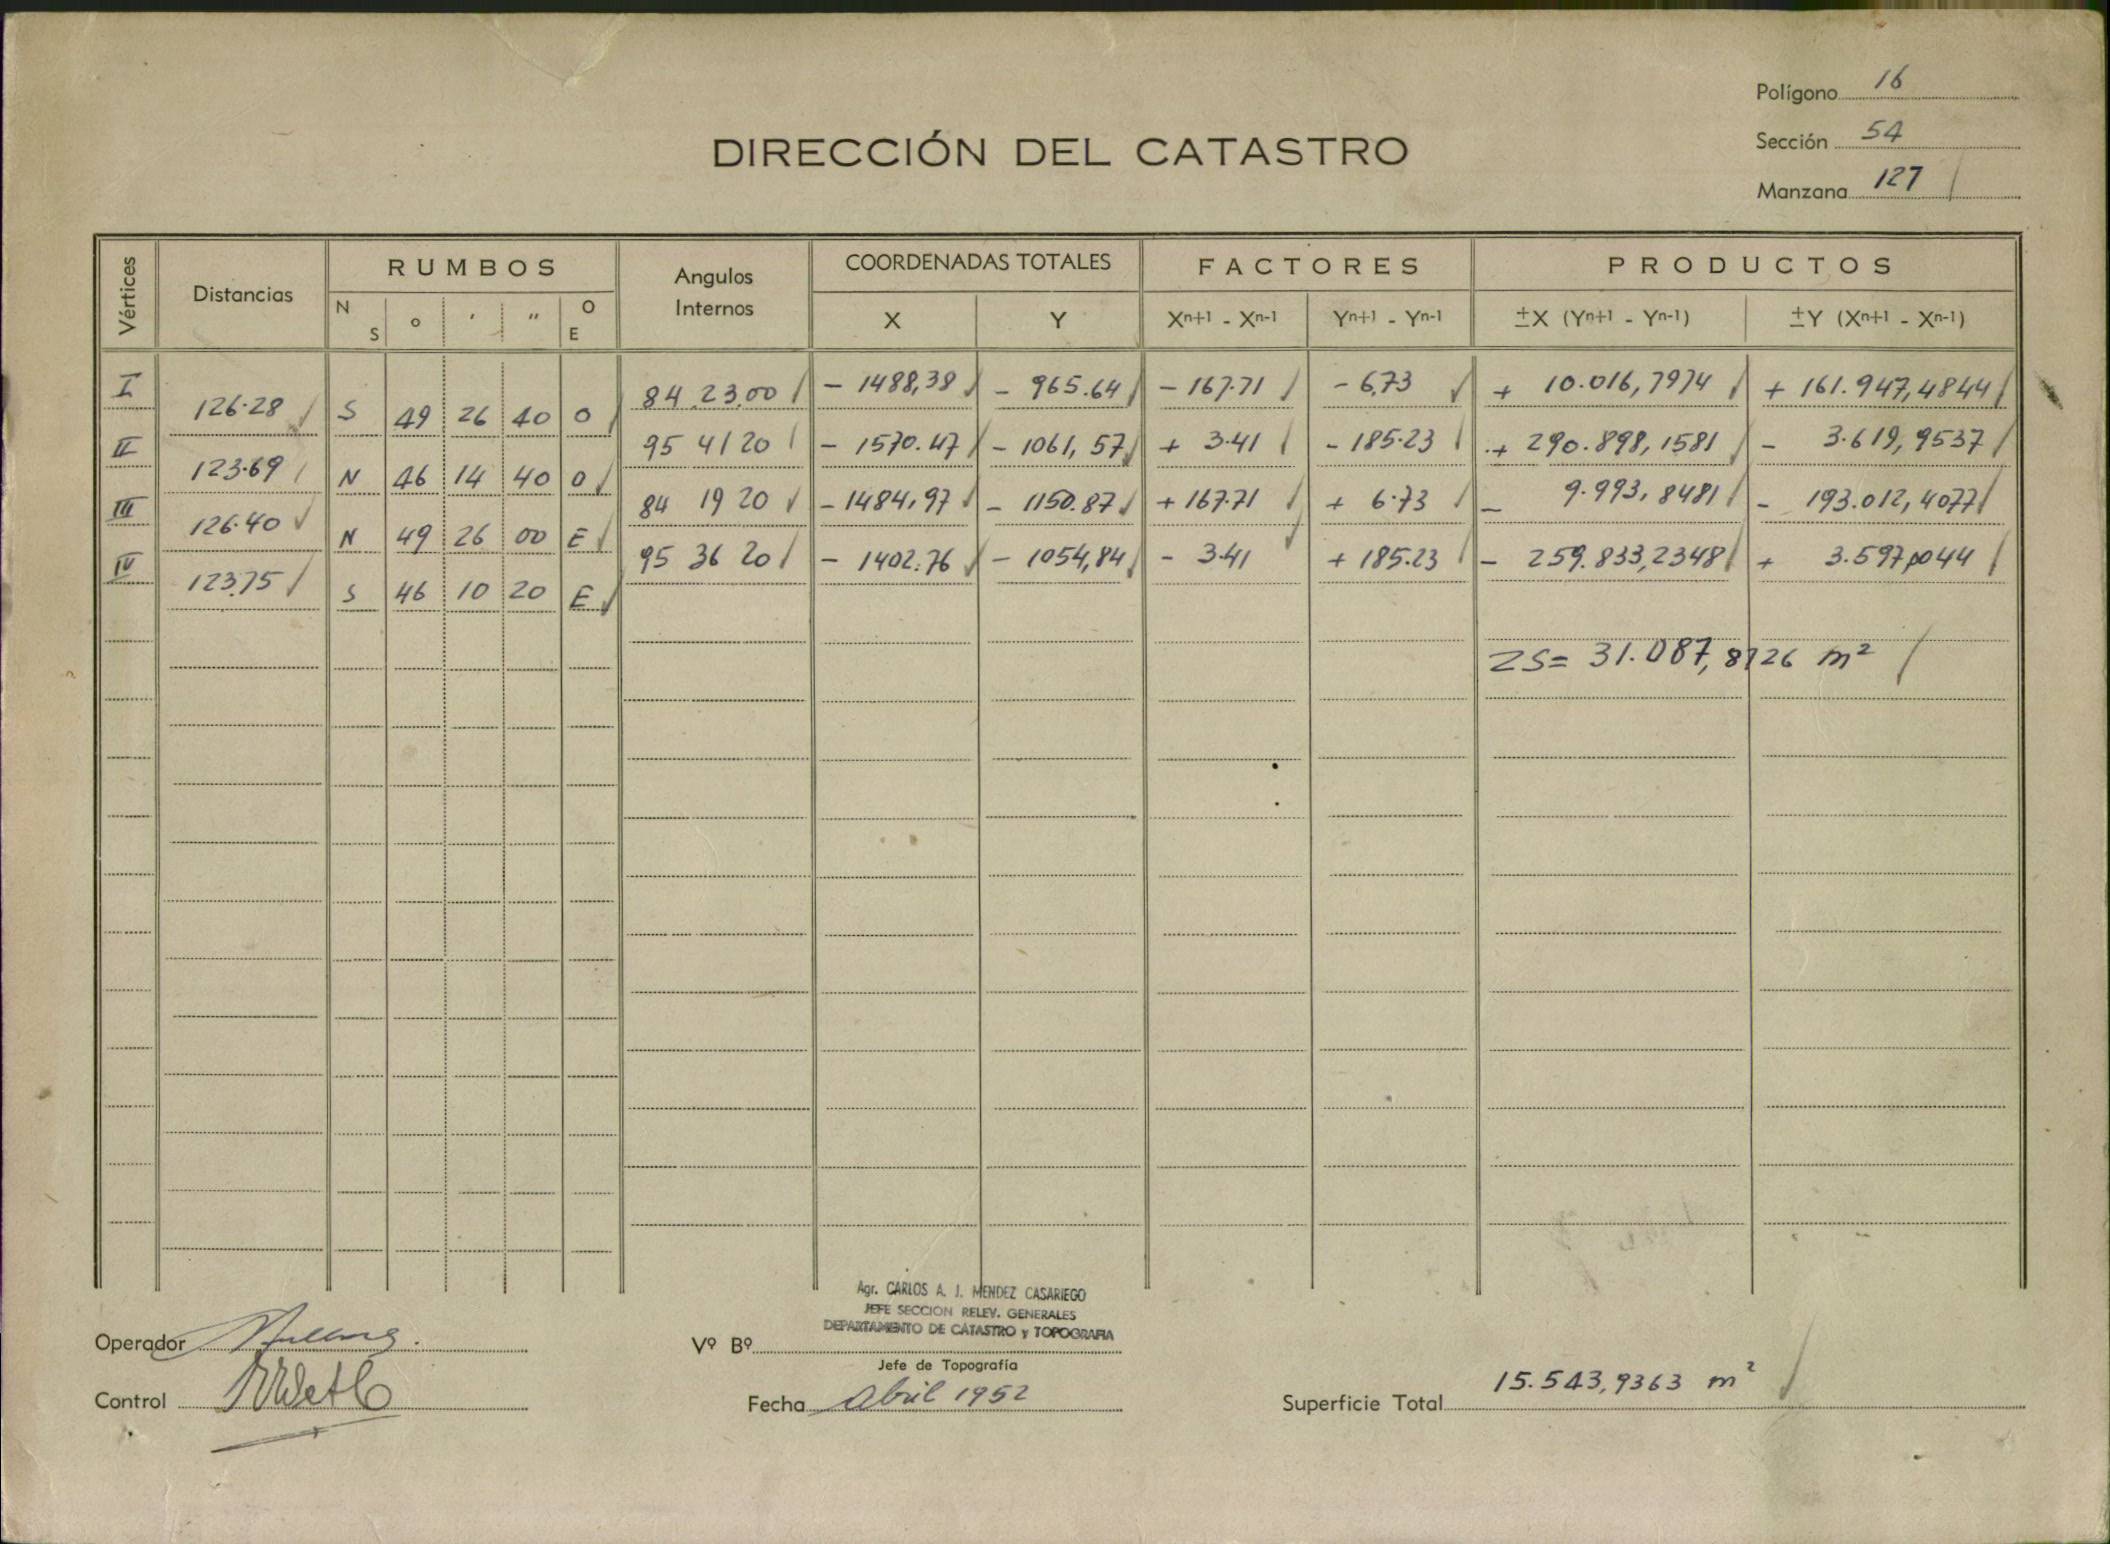 Polígono 16
DIRECCIÓN DEL CATASTRO
Sección 54
Manzana 127
Vértices Distancias RUMBOS Angulos Internos COORDENADAS TOTALES FACTORES PRODUCTOS
N S o ' " O E X Y Xn+1 - Xn-1 Yn+1 - Yn-1 ±X (Yn+1 - Yn-1) ±Y (Xn+1 - Xn-1)
I 84 23 00 - 1488,38 - 965.64 - 167.71 - 6,73 + 10.016,7974 + 161.947,4844
126.28 S 49 26 40 O
II 95 41 20 - 1570.47 - 1061,57 + 3.41 - 185.23 + 290.898,1581 - 3.619,9537
123.69 N 46 14 40 O
III 84 19 20 - 1484,97 - 1150.87 + 167.71 + 6.73 - 9.993,8481 - 193.012,4077
126.40 N 49 26 00 E
IV 95 36 20 - 1402.76 - 1054,84 - 3.41 + 185.23 - 259.833,2348 + 3.597,0044
123.75 S 46 10 20 E
2S= 31.087,8726 m²
Agr. CARLOS A. J. MENDEZ CASARIEGO
JEFE SECCION RELEV. GENERALES
DEPARTAMENTO DE CATASTRO y TOPOGRAFIA
Operador
Vº Bº
Jefe de Topografía
Control
Fecha Abril 1952
Superficie Total 15.543,9363 m²